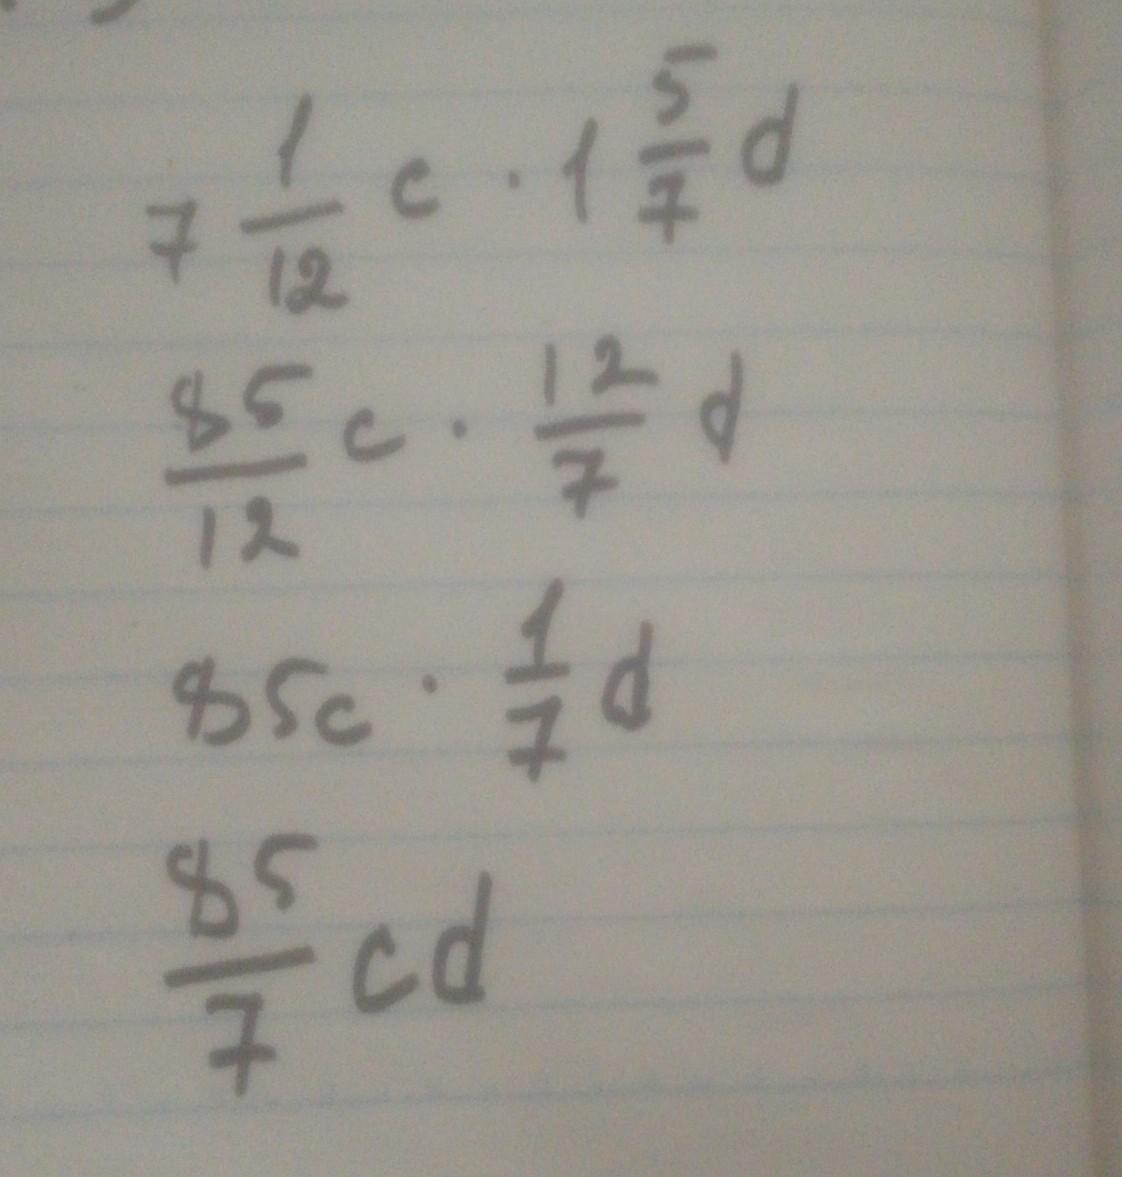 7 1/12 c · 1 5/7 d
85/12 c · 12/7 d
85c · 1/7 d
85/7 cd